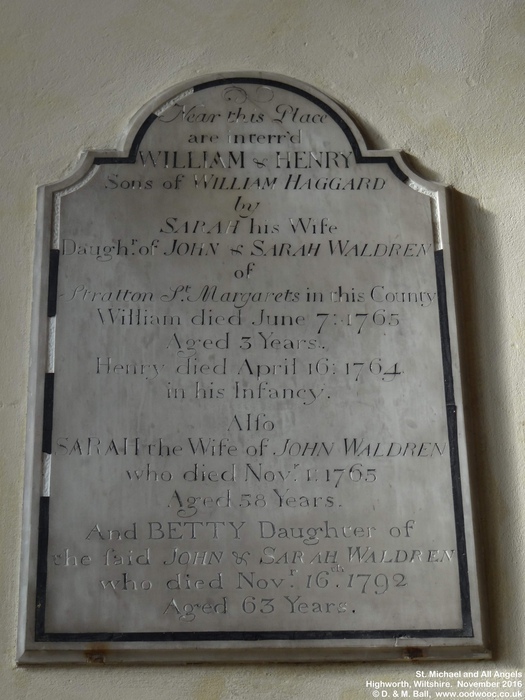 Near this Place
are interr'd
WILLIAM & HENRY
Sons of WILLIAM HAGGARD
by
SARAH his Wife
Daughr. of JOHN & SARAH WALDREN
of
Stratton St. Margarets in this County
William died June 7: 1765
Aged 3 Years.
Henry died April 16: 1764
in his Infancy.
Alſo
SARAH the Wife of JOHN WALDREN
who died Novr. 1: 1765
Aged 58 Years.
And BETTY Daughter of
the ſaid JOHN & SARAH WALDREN
who died Novr. 16th. 1792
Aged 63 Years.
St. Michael and All Angels
Highworth, Wiltshire. November 2016
© D. & M. Ball, www.oodwooc.co.uk